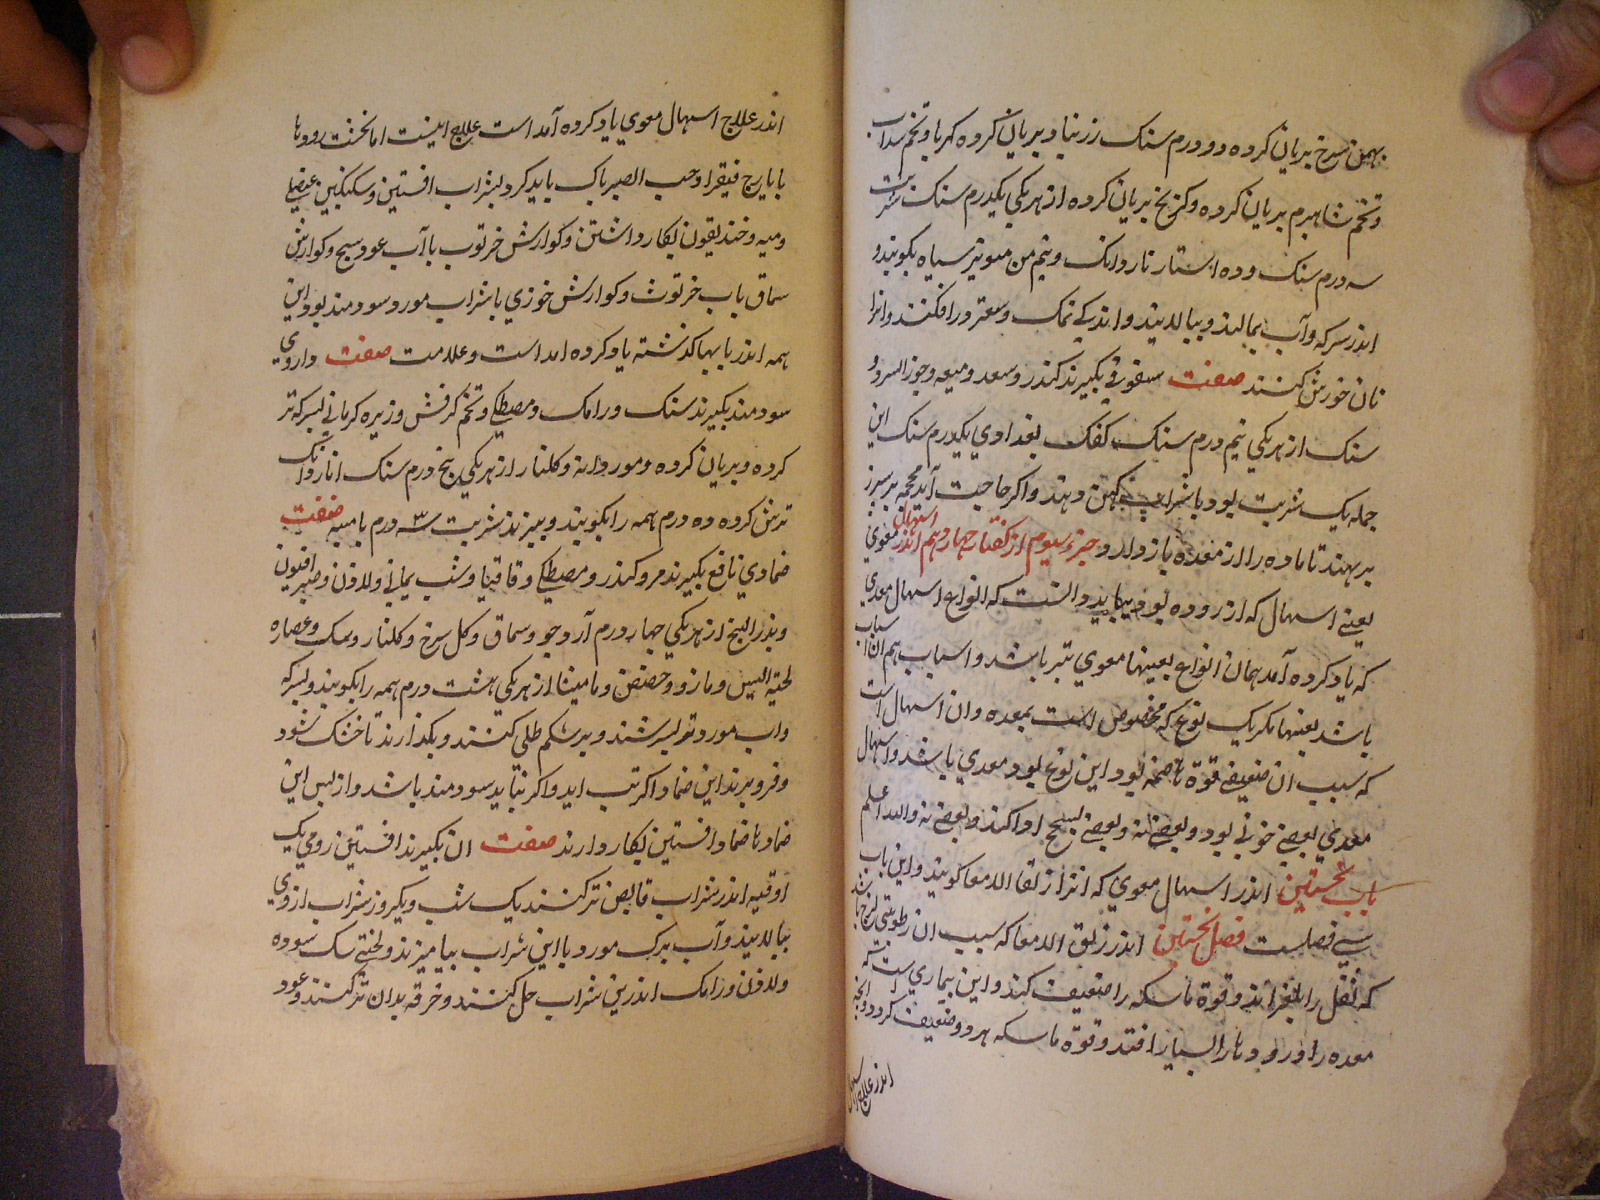 بهمن سرخ بریان کرده دو درم سنک زرنباد بریان کرده کهربا و تخم سداب
و تخم شاهبرم بریان کرده و کزبخ بریان کرده از هر یکی یکدرم سنک شربت
سه درم سنک و ده استار ناردانک و نیم من مویز سیاه بکوبند و
اندر سرکه و آب بمالند و ببالایند و اندکی نمک و سعتر در افکنند و انرا
نان خورش کنند صفت سفوفی بکیرند کندر و سعد و میعه و جوز السرو
سنک از هر یکی نیم درم سنک کعک بغدادی یکدرم سنک این
جمله یک شربت بود با شراب کهن دهند و اکر حاجت آید محجمه بر سپرز
بر نهند تا ماده را از معده باز دارد و جزء سیوم از کفتار چهاردهم اندر اسهال معوی
یعنی اسهال که از روده بود بباید دانست که انواع اسهال معدی
که یاد کرده آمد همان انواع بعینها معوی نیز باشد و اسباب هم ان اسباب
باشد بعینها مکر یک نوع که مخصوص است بمعده و ان اسهال است
که سبب ان ضعیفی قوة هاضمه بود این نوع بود معدی باشد و اسهال
معدی بعضی خونی بود و بعضی نه و بعضی بسحج ادا کند و بعضی نه والله اعلم
باب نخستین اندر اسهال معوی که انرا زلق الامعا کویند و این باب
سه فصلست فصل نخستین اندر زلق الامعا که سبب ان رطوبتی لزج باشد
که ثفل را بلغزاند و قوة ماسکه را ضعیف کند و این بیماری است که
معده را و رودها را بسیار افتد و قوة ماسکه هر دو ضعیف کردد و انچه
اندر علاج اسهال
اندر علاج اسهال معوی یاد کرده آمد است علاج اینست اما نخست رودها
با یارج فیقرا و حب الصبر پاک باید کرد و بشراب افستین و سکنکبین عنصلی
و میبه و خندیقون بکار داشتن و کوارش خرنوب با آب عود سبج و کوارش
سماق باب خرتوت و کوارش خوزی با شراب مورد سودمند بود و این
همه اندر بابها کذشته یاد کرده امد است و علامت صفت داروی
سودمند بکیرند سنک و رامک و مصطکی و تخم کرفش و زیره کرمانی بسرکه تر
کرده و بریان کرده و مورد دانه و کلنار از هر یکی پنج درم سنک اناردانک
ترش کرده ده درم همه را بکوبند و ببیزند شربت ۳ سه درم با میبه صفت
ضمادی نافع بکیرند مر و کندر و مصطکی و قاقیا و شب یمانی و لادن و صبر و افیون
و بذر البنج از هر یکی چهار درم آرد جو و سماق و کل سرخ و کلنار و سک و عصاره
لحیة التیس و مازو و حضض و مامیثا از هر یکی هشت درم همه را بکوبند و بسرکه
و اب مورد تر بسرشند و بر شکم طلی کنند و بکذارند تا خشک شود
و فرو برند این ضماد اکر تب اید و اکر نیاید سودمند باشد و از پس این
ضمادها ضماد افستین بکار دارند صفت ان بکیرند افستین رومی یک
اوقیه اندر شراب قابض تر کنند یک شب و یکروز شراب ازوی
ببالایند و آب برک مورد با این شراب بیامیزند و لختی سک سوده
و لادن و رامک اندرین شراب حل کنند و خرقه بدان تر کنند و عود